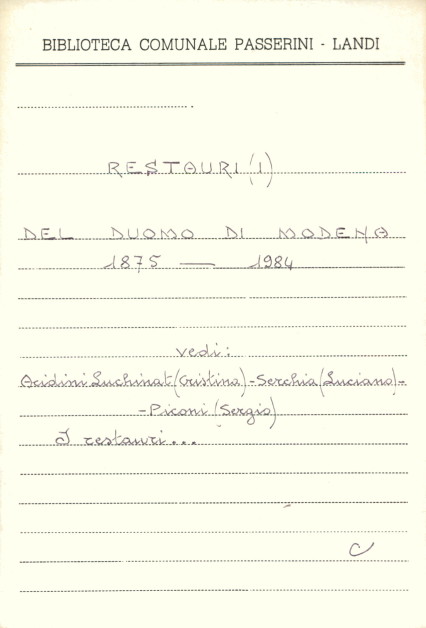 BIBLIOTECA COMUNALE PASSERINI - LANDI
RESTAURI (I)
DEL DUOMO DI MODENA
1875 — 1984
vedi:
Acidini Luchinat (Cristina) - Serchia (Luciano) -
- Piconi (Sergio)
I restauri...
C